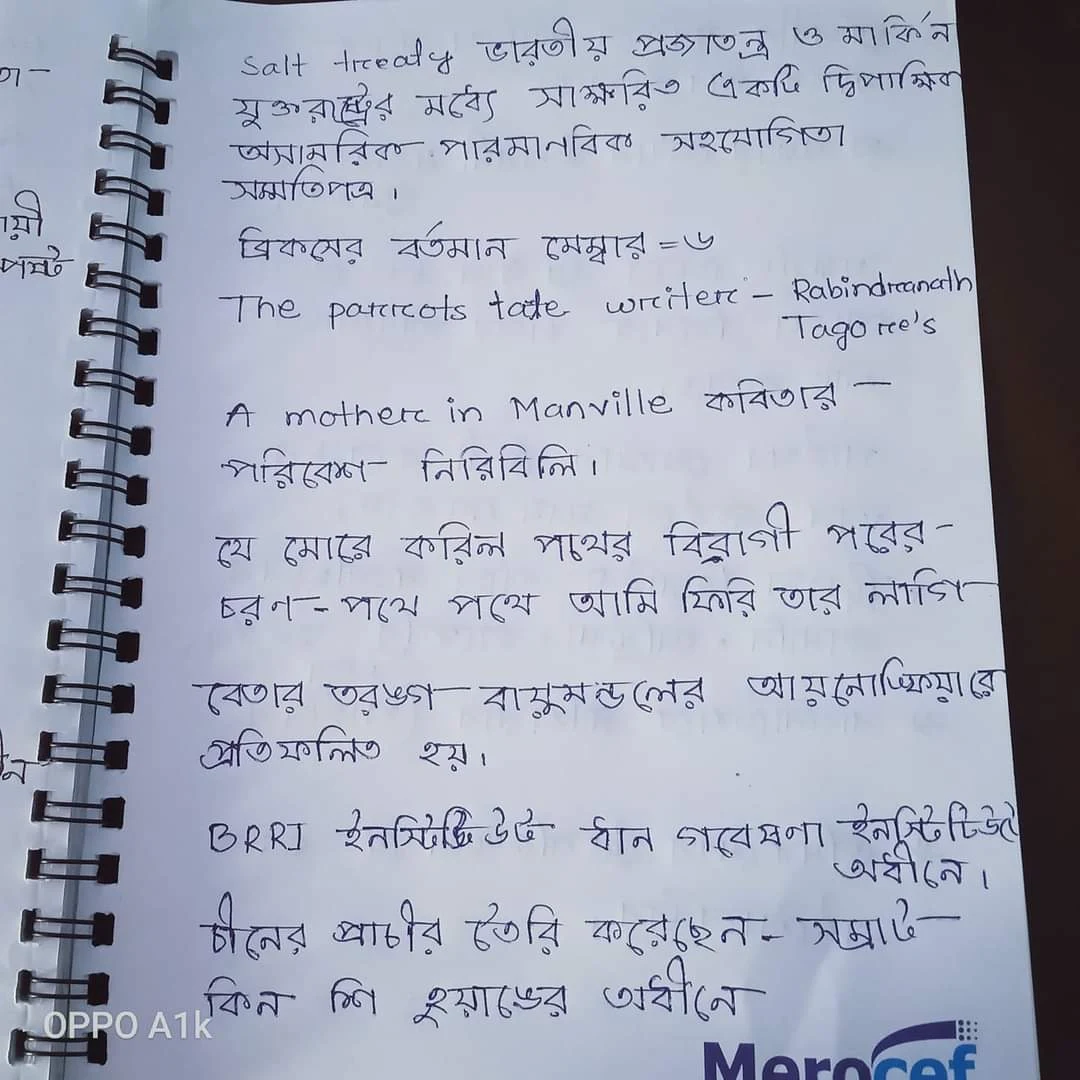 তা -
ায়ী
পষ্ট
ীন
Salt treaty ভারতীয় প্রজাতন্ত্র ও মার্কিন
যুক্তরাষ্ট্রের মধ্যে সাক্ষরিত একটি দ্বিপাক্ষিক
অসামরিক পারমানবিক সহযোগিতা
সম্মতিপত্র ।
ব্রিকসের বর্তমান মেম্বার = ৬
The parrots tale writer - Rabindranath
Tagore's
A mother in Manville কবিতার -
পরিবেশ নিরিবিলি ।
যে মোরে করিল পথের বিরাগী পরের -
চরণ - পথে পথে আমি ফিরি তার লাগি
বেতার তরঙ্গ বায়ুমন্ডলের আয়নোস্ফিয়ারে
প্রতিফলিত হয় ।
BRRI ইনস্টিটিউট ধান গবেষণা ইনস্টিটিউট
অধীনে ।
চীনের প্রাচীর তৈরি করেছেন - সম্রাট
কিন শি হুয়াঙের অধীনে
OPPO A1k
Merocef